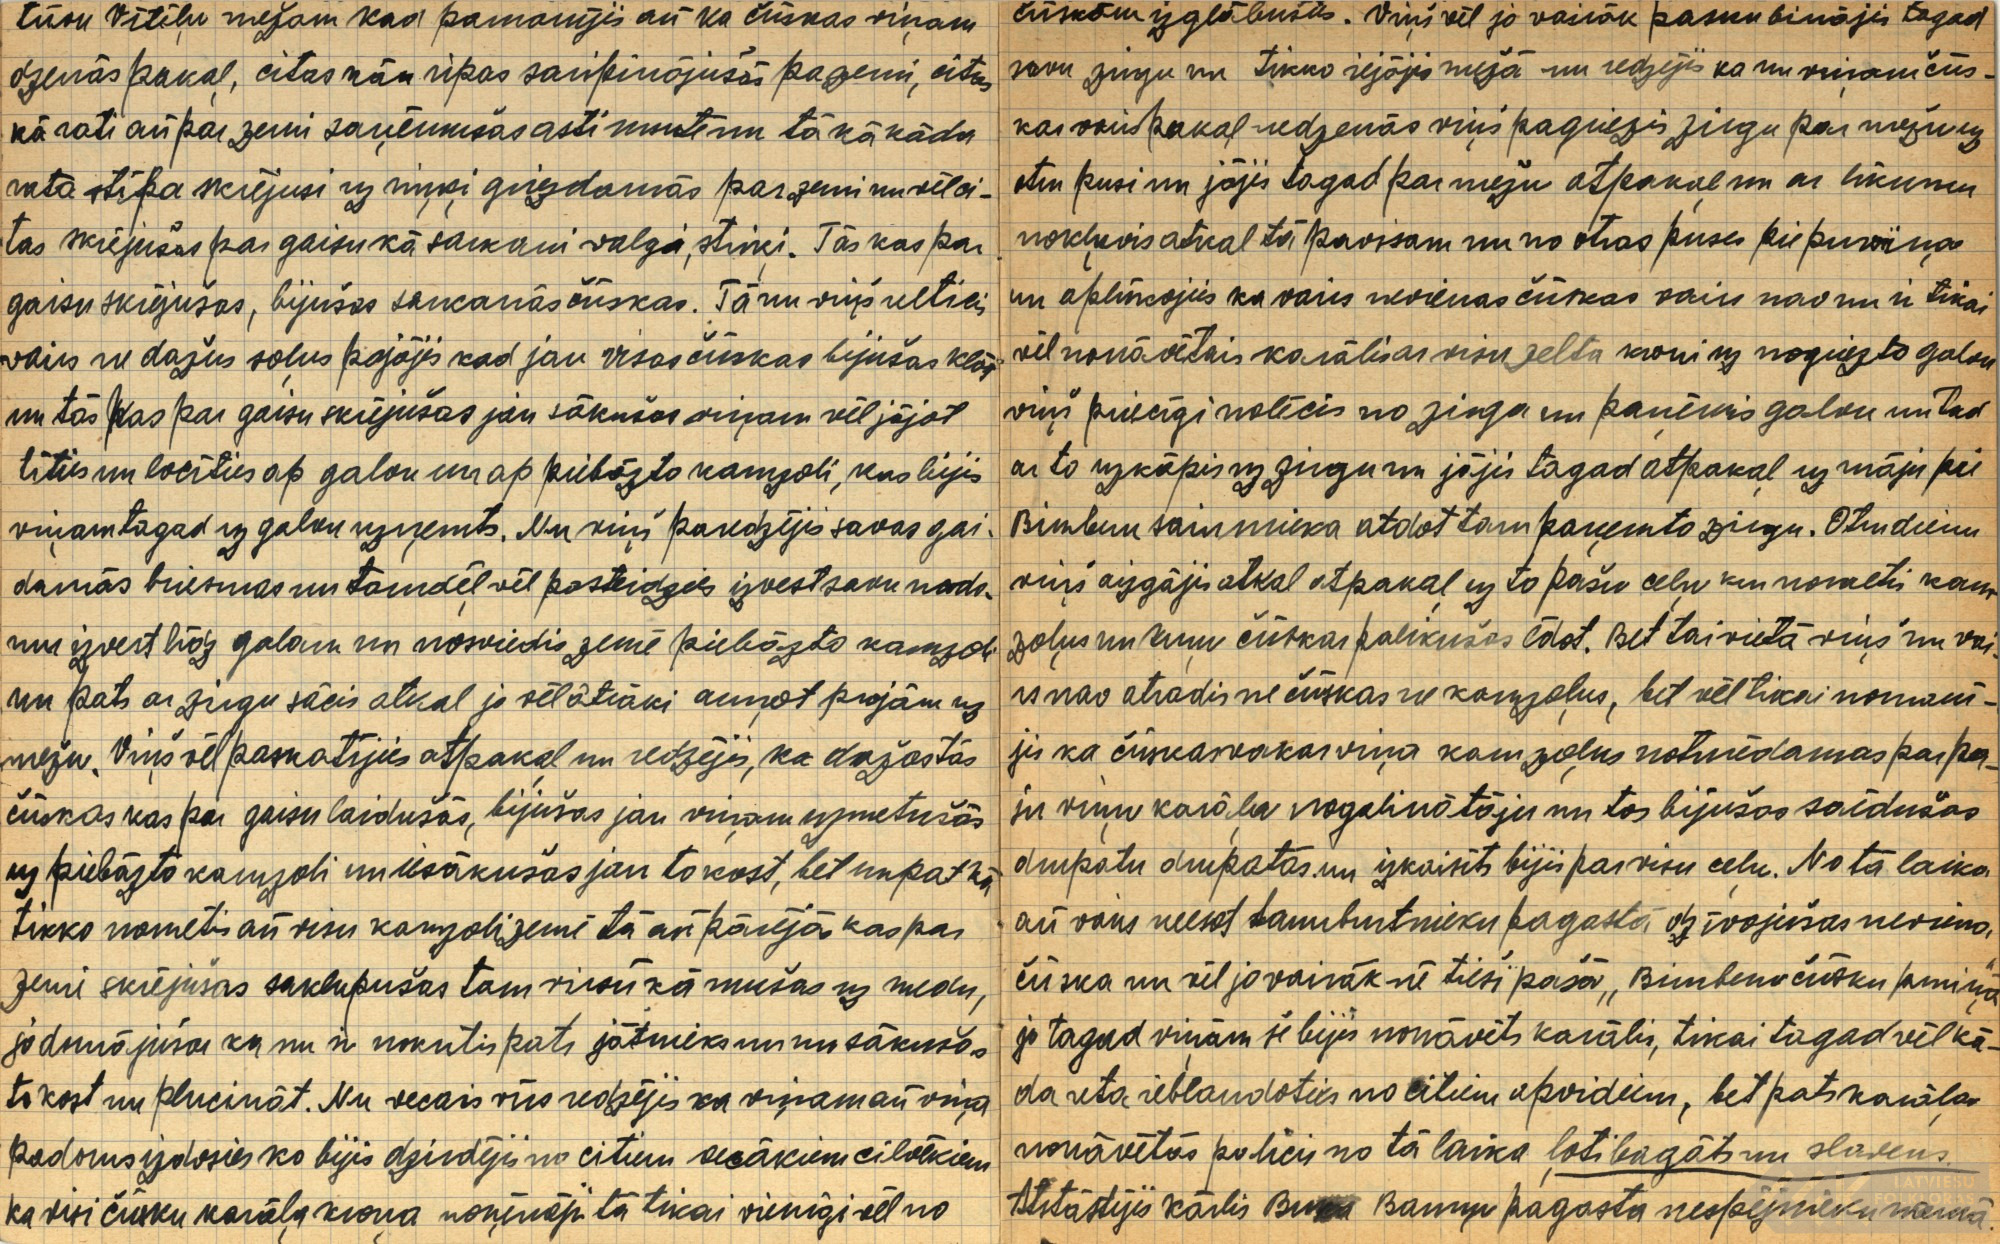 tuvu Vītiņu mežam kad pamanījis arī ka čūskas viņam
dzenās pakaļ, citas kān ripas saripinājušās pa zemi, citas
kā rati arī par zemi saņēmušas asti mutē nu tā kā kāda
rata stīpa skrējusi uz riņķi griezdamās par zemi nu vēl ci-
tas skrējušas par gaisu kā sarkani valgi, striķi. Tās kas par
gaisu skrējušas, bijušas sarkanās čūskas. Tā nu viņš veltīci
vairs ne dažus soļus pajājis kad jau visas čūskas bijušas klāt
un tās kas par gaisu skrējušas jau sākušas viņam vēl jājot
tīties un locīties ap galvu un ap piebāzto kamzoli, kas bijis
viņam tagad uz galvu uzņemts. Nu viņš paredzējis savas gai-
damās briesmas un tāmdēļ vēl pasteidzies izvest savu nodo-
mu izvest līdz galam un nosviedis zemē piebāzto kamzoli
un pats ar zirgu sācis atkal jo vēl ātrāki aumot projām uz
mežu. Viņš vēl paskatījies atpakaļ un redzējis, ka dažas tās
čūskas kas par gaisu laidušās, bijušas jau viņam uzmetušās
uz piebāzto kamzoli un iesākušas jau to kost, bet nupat kā
tikko nometis arī visu kamzoli zemē tā arī pārējās kas par
zemi skrējušas saklupušas tam virsū kā mušas uz medu,
jo domājušas ka nu ir nokritis pats jātnieks un nu sākušas
to kost un plucināt. Nu vecais vīrs redzējis ka viņam arī viņa
padoms izdosies ko bijis dzirdējis no citiem vecākiem cilvēkiem
ka visi čūsku karāļa kroņa noņēmēji tā tikai vienīgi vēl no
čūskām izglābušies. Viņš vēl jo vairāk paskubinājis tagad
savu zirgu un tikko iejājis mežā un redzējis ka nu viņam čūs-
kas vairs pakaļ nedzenās viņš pagriezis zirgu par mežu uz
otru pusi un jājis tagad par mežu atpakaļ un ar līkumu
nokļuvis atkal tā pavisam nu no otras puses pie purviņa
un aplūkojies ka vairs nevienas čūskas vairs nav nu ir tikai
vēl nonāvētais karālis ar visu zelta kroni uz nogriezto galvu
viņš priecīgi nolēcis no zirga un paņēmis galvu un tad
ar to uzkāpis uz zirgu un jājis tagad atpakaļ uz māju pie
Bimbenu saimnieka atdot tam paņemto zirgu. Otrudienu
viņš aizgājis atkal atpakaļ uz to pašu ceļu kur nometis kam-
zoļus un kuŗu čūskas palikušas ēdot. Bet tai vietā viņš nu vai-
rs nav atradis ne čūskas ne kamzoļus, bet vēl tikai nomanī-
jis ka čūskas vakar viņa kamzoļus noturēdamas par pa-
šu viņu karāļa nogalinātāju un tos bijušas saēdušas
drupatu drupatās un izkaisīts bijis par visu ceļu. No tā laika
arī vairs neesot Lamburtnieku pagastā dzīvojušas neviena
čūska un vēl jo vairāk nē tieši pašā „Bimbenu čūsku purviņā"
jo tagad viņām še bijis nonāvēts karālis, tikai tagad vēl kā-
da reta ieblandoties no citiem apvidiem, bet pats karāļa
nonāvētās palicis no tā laika ļoti bagāts un slavens.
Atstāstījis Kārlis Bunka Bauņu pagasta nespējnieku namā.
LATVIEŠU FOLKLORAS